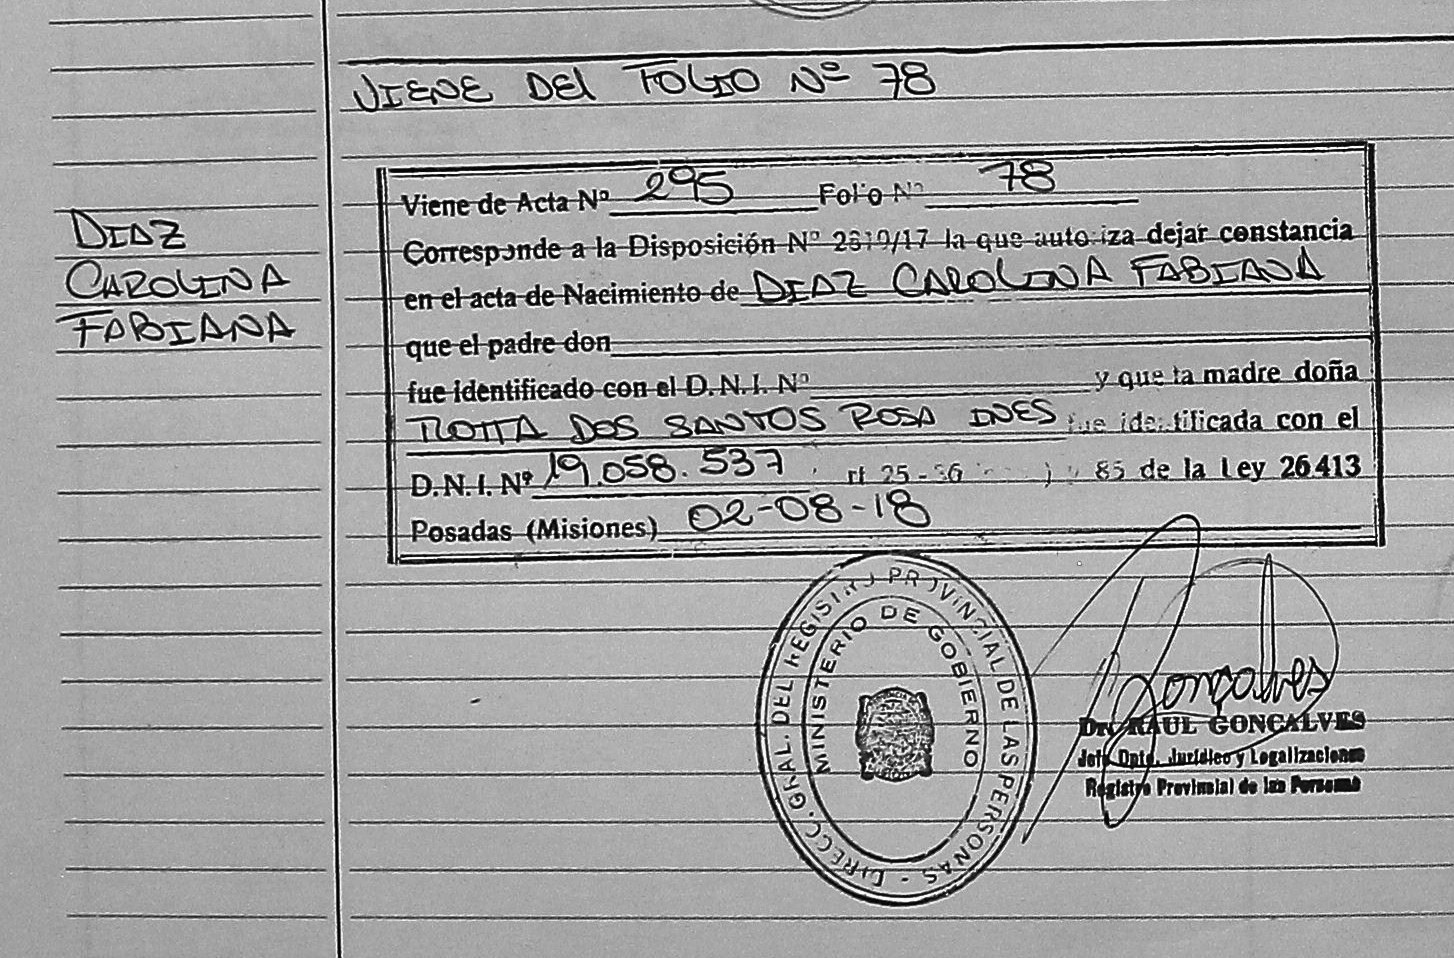 VIENE DEL FOLIO Nº 78
DIAZ
CAROLINA
FABIANA
Viene de Acta Nº 295 Folio Nº 78
Corresponde a la Disposición Nº 2819/17 la que autoriza dejar constancia
en el acta de Nacimiento de DIAZ CAROLINA FABIANA
que el padre don
fue identificado con el D.N.I. Nº y que la madre doña
TROTTA DOS SANTOS ROSA INES fue identificada con el
D.N.I. Nº 19.058.537 rt 25-36 y 85 de la Ley 26.413
Posadas (Misiones) 02-08-18
DIRECC. GRAL. DEL REGISTRO PROVINCIAL DE LAS PERSONAS -
MINISTERIO DE GOBIERNO
Gonçalves
Dr. RAUL GONCALVES
Jefe Dpto. Jurídico y Legalizaciones
Registro Provincial de las Personas